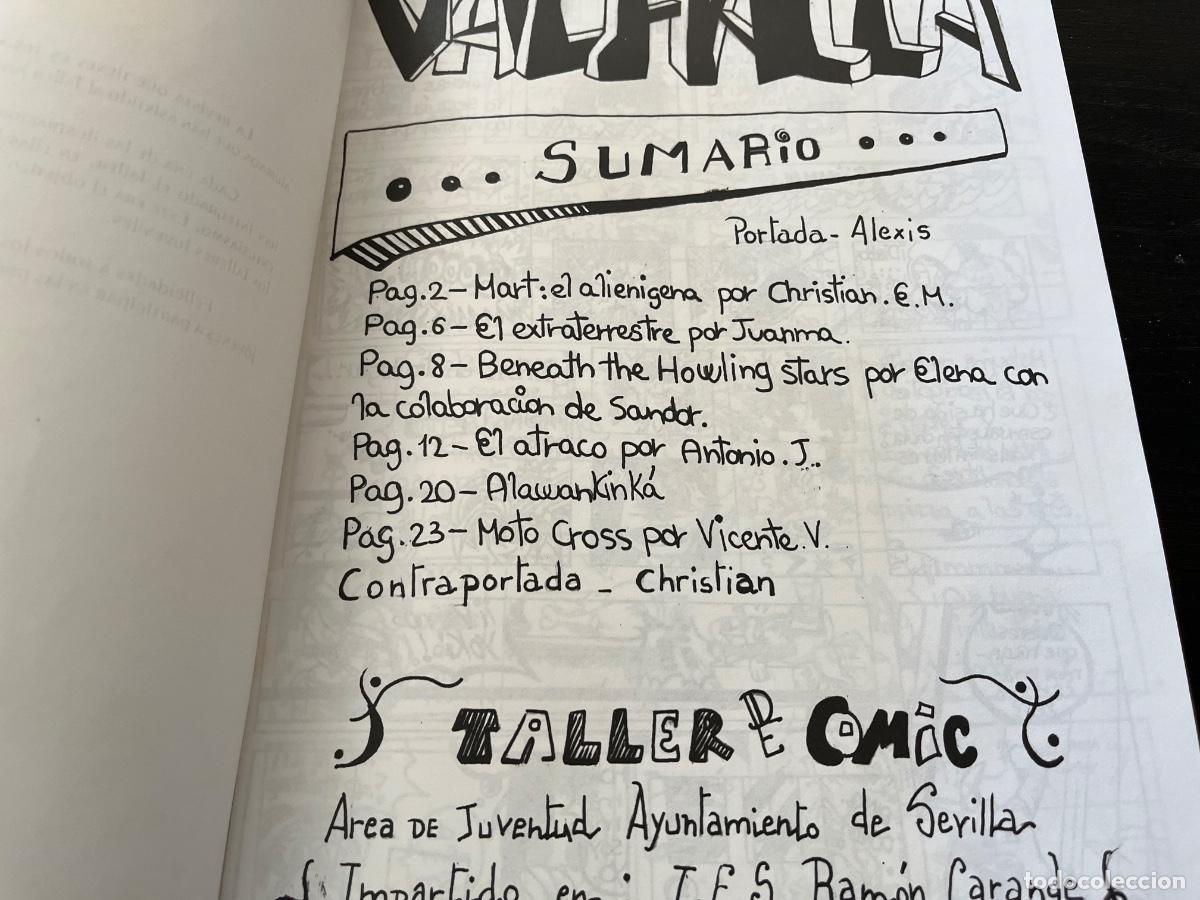 VALHALLA
... SUMARIO ...
Portada - Alexis
Pag.2 - Mart: el alienigena por Christian. E.M.
Pag.6 - El extraterrestre por Juanma.
Pag.8 - Beneath the Howling stars por Elena con
la colaboracion de Sandor.
Pag.12 - El atraco por Antonio.J..
Pag.20 - Alawankinká
Pag.23 - Moto Cross por Vicente.V.
Contraportada - Christian
TALLER DE COMIC
Area DE Juventud Ayuntamiento de Sevilla
Impartido en: I.E.S. Ramón Carande
todocoleccion